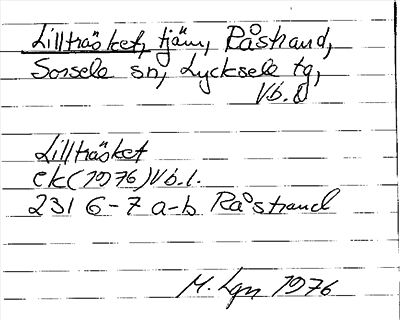 Lillträsket, tjäm, Råstrand,
Sorsele sn, Lycksele tg,
Vb.l
Lillträsket
ek(1976)Vb.l.
231 6-7 a-b Råstrand
M. Lgn 1976